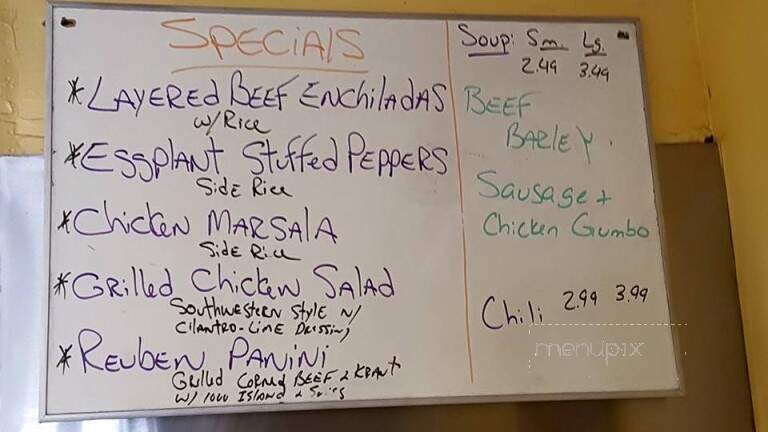 SPECIALS
* LAYERED BEEF ENCHILADAS
w/ RICE
* EGGPLANT STUFFED PEPPERS
SIDE RICE
* CHICKEN MARSALA
SIDE RICE
* GRILLED CHICKEN SALAD
SOUTHWESTERN STYLE W/
CILANTRO-LIME DRESSING
* REUBEN PANINI
GRILLED CORNED BEEF & KRAUT
W/ 1000 ISLAND &
Soup: Sm. Lg.
2.49 3.49
BEEF
BARLEY
SAUSAGE +
CHICKEN GUMBO
Chili 2.99 3.99
menupix